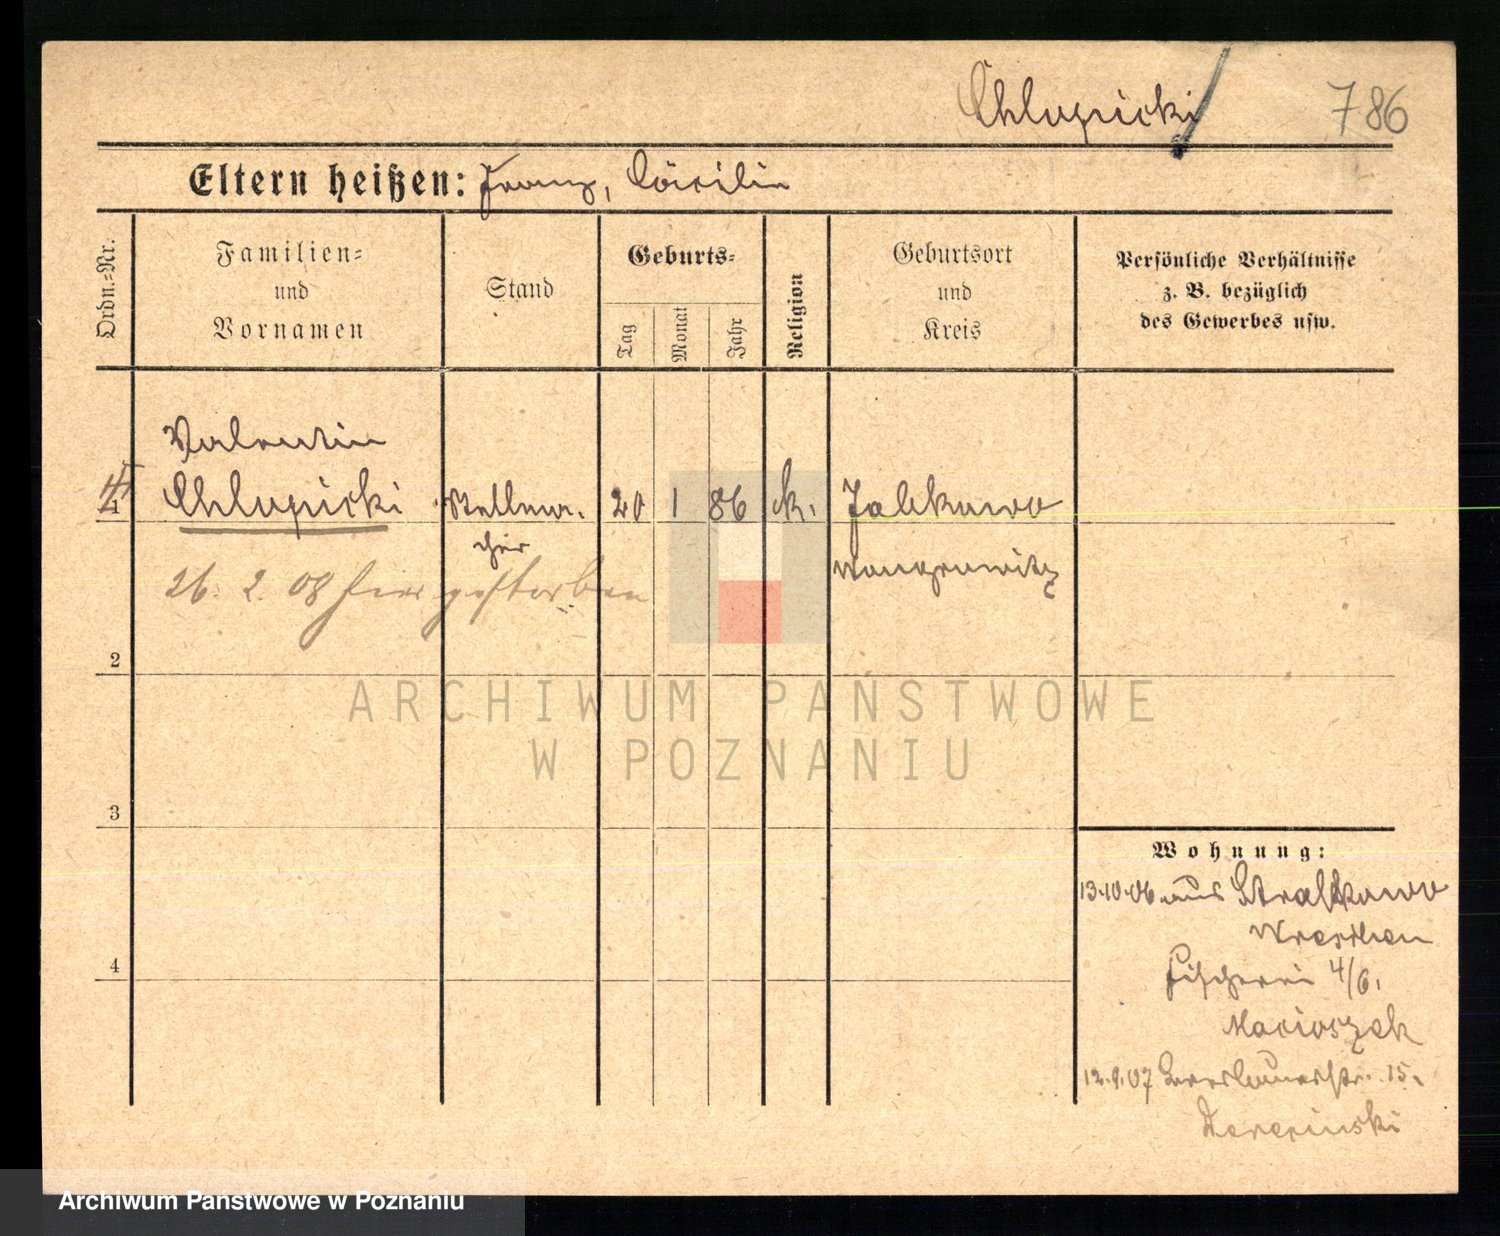 Chlupicki 786
Eltern heißen: Franz, Cäcilia
Ordn.-Nr.
Familien-
und
Vornamen
Stand
Geburts-
Tag
Monat
Jahr
Religion
Geburtsort
und
Kreis
Persönliche Verhältnisse
z. B. bezüglich
des Gewerbes usw.
Valentin
1 Chlupicki Stellma- 20 1 86 k.
cher Wongrowitz
26. 2. 08 hier gestorben
2
ARCHIWUM PAŃSTWOWE
W POZNANIU
3
Wohnung:
13.10.06 aus Stralkowo
Wreschen
Fischerei 4/6.
Macioszek
12.9.07 15.
4
Archiwum Państwowe w Poznaniu